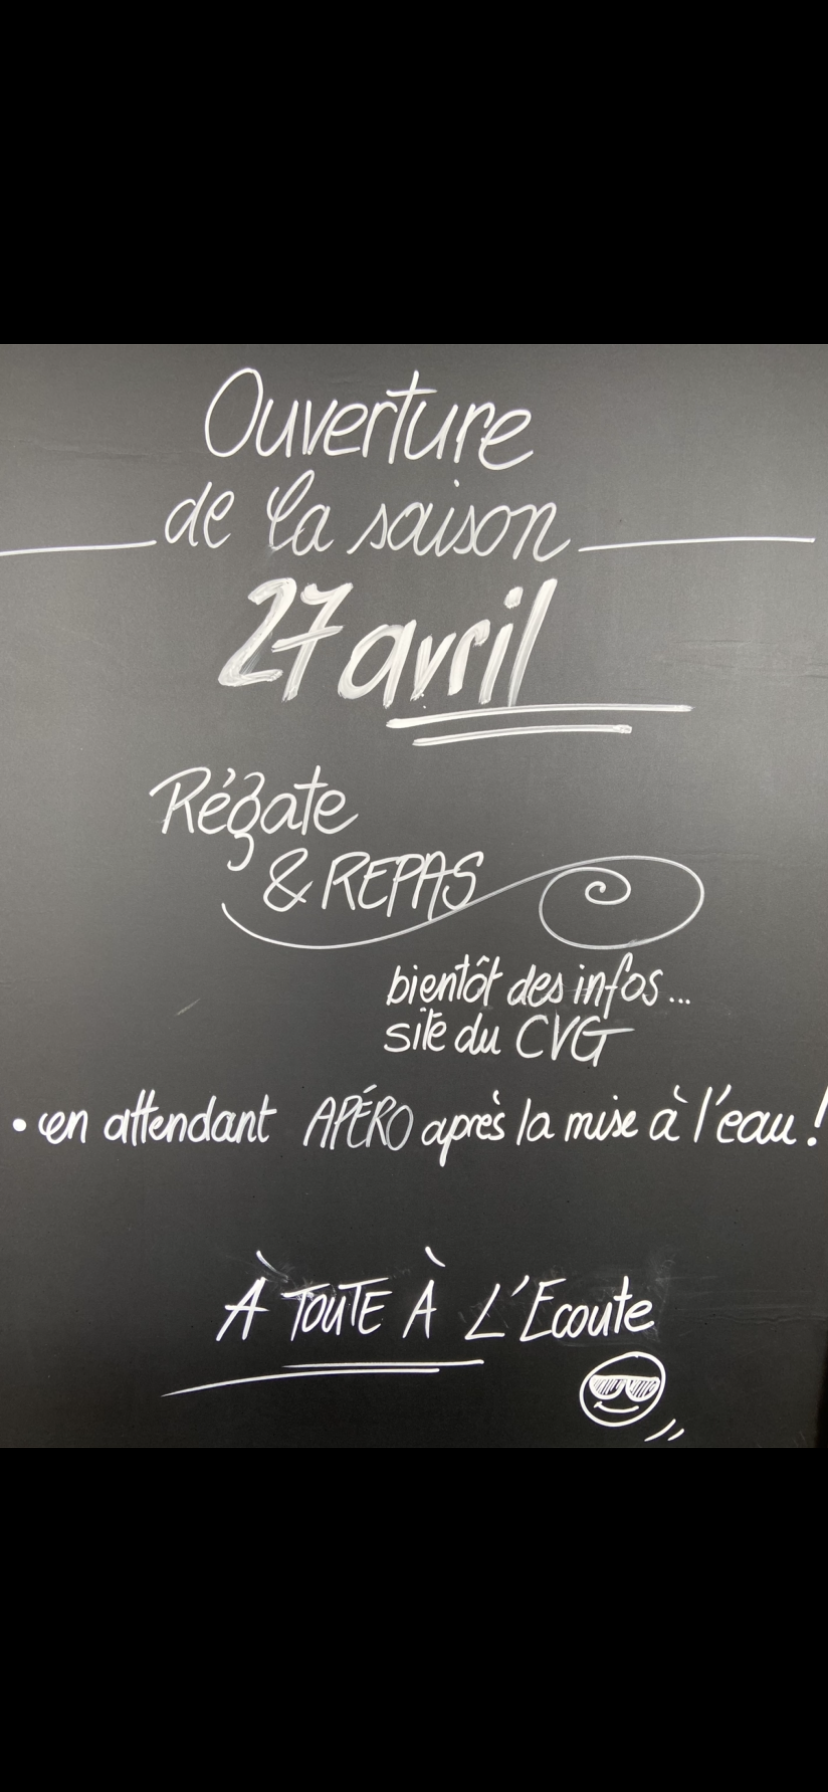 Ouverture
de la saison
27 avril
Régate
& REPAS
bientôt des infos...
site du CVG
• en attendant APÉRO après la mise à l'eau !
À TOUTE À L'Ecoute